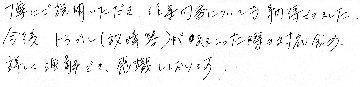 丁寧にご説明いただき、作業内容についても納得できました。
今後トラブル(故障等)が起こった時の対応含め、
詳しく理解でき、感謝しております。